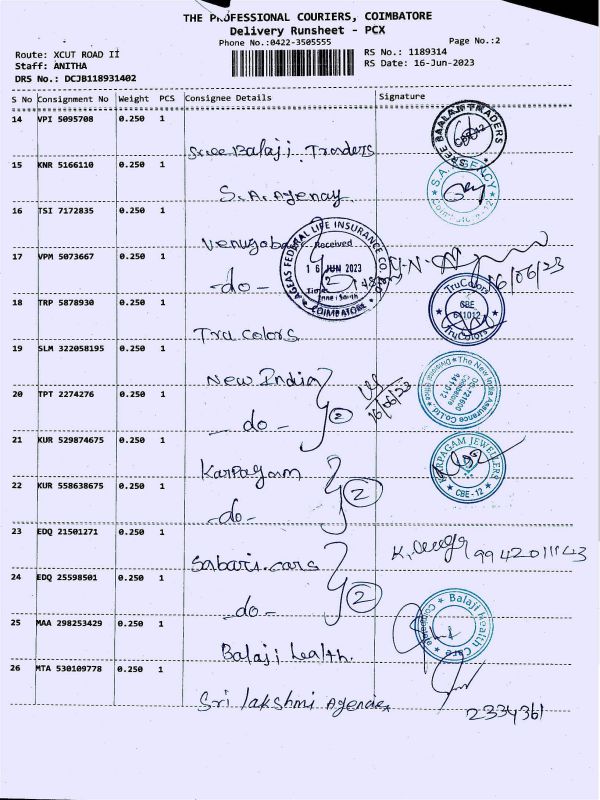 THE PROFESSIONAL COURIERS, COIMBATORE
Delivery Runsheet - PCX
Phone No.:0422-3505555
Page No.:2
Route: XCUT ROAD II
Staff: ANITHA
DRS No.: DCJB118931402
RS No.: 1189314
RS Date: 16-Jun-2023
S No Consignment No Weight PCS Consignee Details Signature
14 VPI 5095708 0.250 1
Sree Balaji Traders
SREE BAALAN TRADERS
15 KNR 5166110 0.250 1
S.A. Agenay
S.A. AGENCY
16 TSI 7172835 0.250 1
Venugoba
AGEAS FEDERAL LIFE INSURANCE CO.
Received
16 JUN 2023
Time
COIMBATORE
17 VPM 5073667 0.250 1
-do-
2
16/06/23
18 TRP 5878930 0.250 1
Tru colors
TruColors
CBE
641012
TruColors
19 SLM 322058195 0.250 1
New India
The New India Assurance Co.Ltd
20 TPT 2274276 0.250 1
- do -
2
16/06/23
21 KUR 529874675 0.250 1
Karpagam
KARPAGAM JEWELLERS
CBE-12
22 KUR 558638675 0.250 1
-do-
2
23 EDQ 21501271 0.250 1
Sabari cars
9942011143
24 EDQ 25598501 0.250 1
-do-
2
25 MAA 298253429 0.250 1
Balaji health
Balaji Health Care
26 MTA 530109778 0.250 1
Sri lakshmi Agencies
2334361